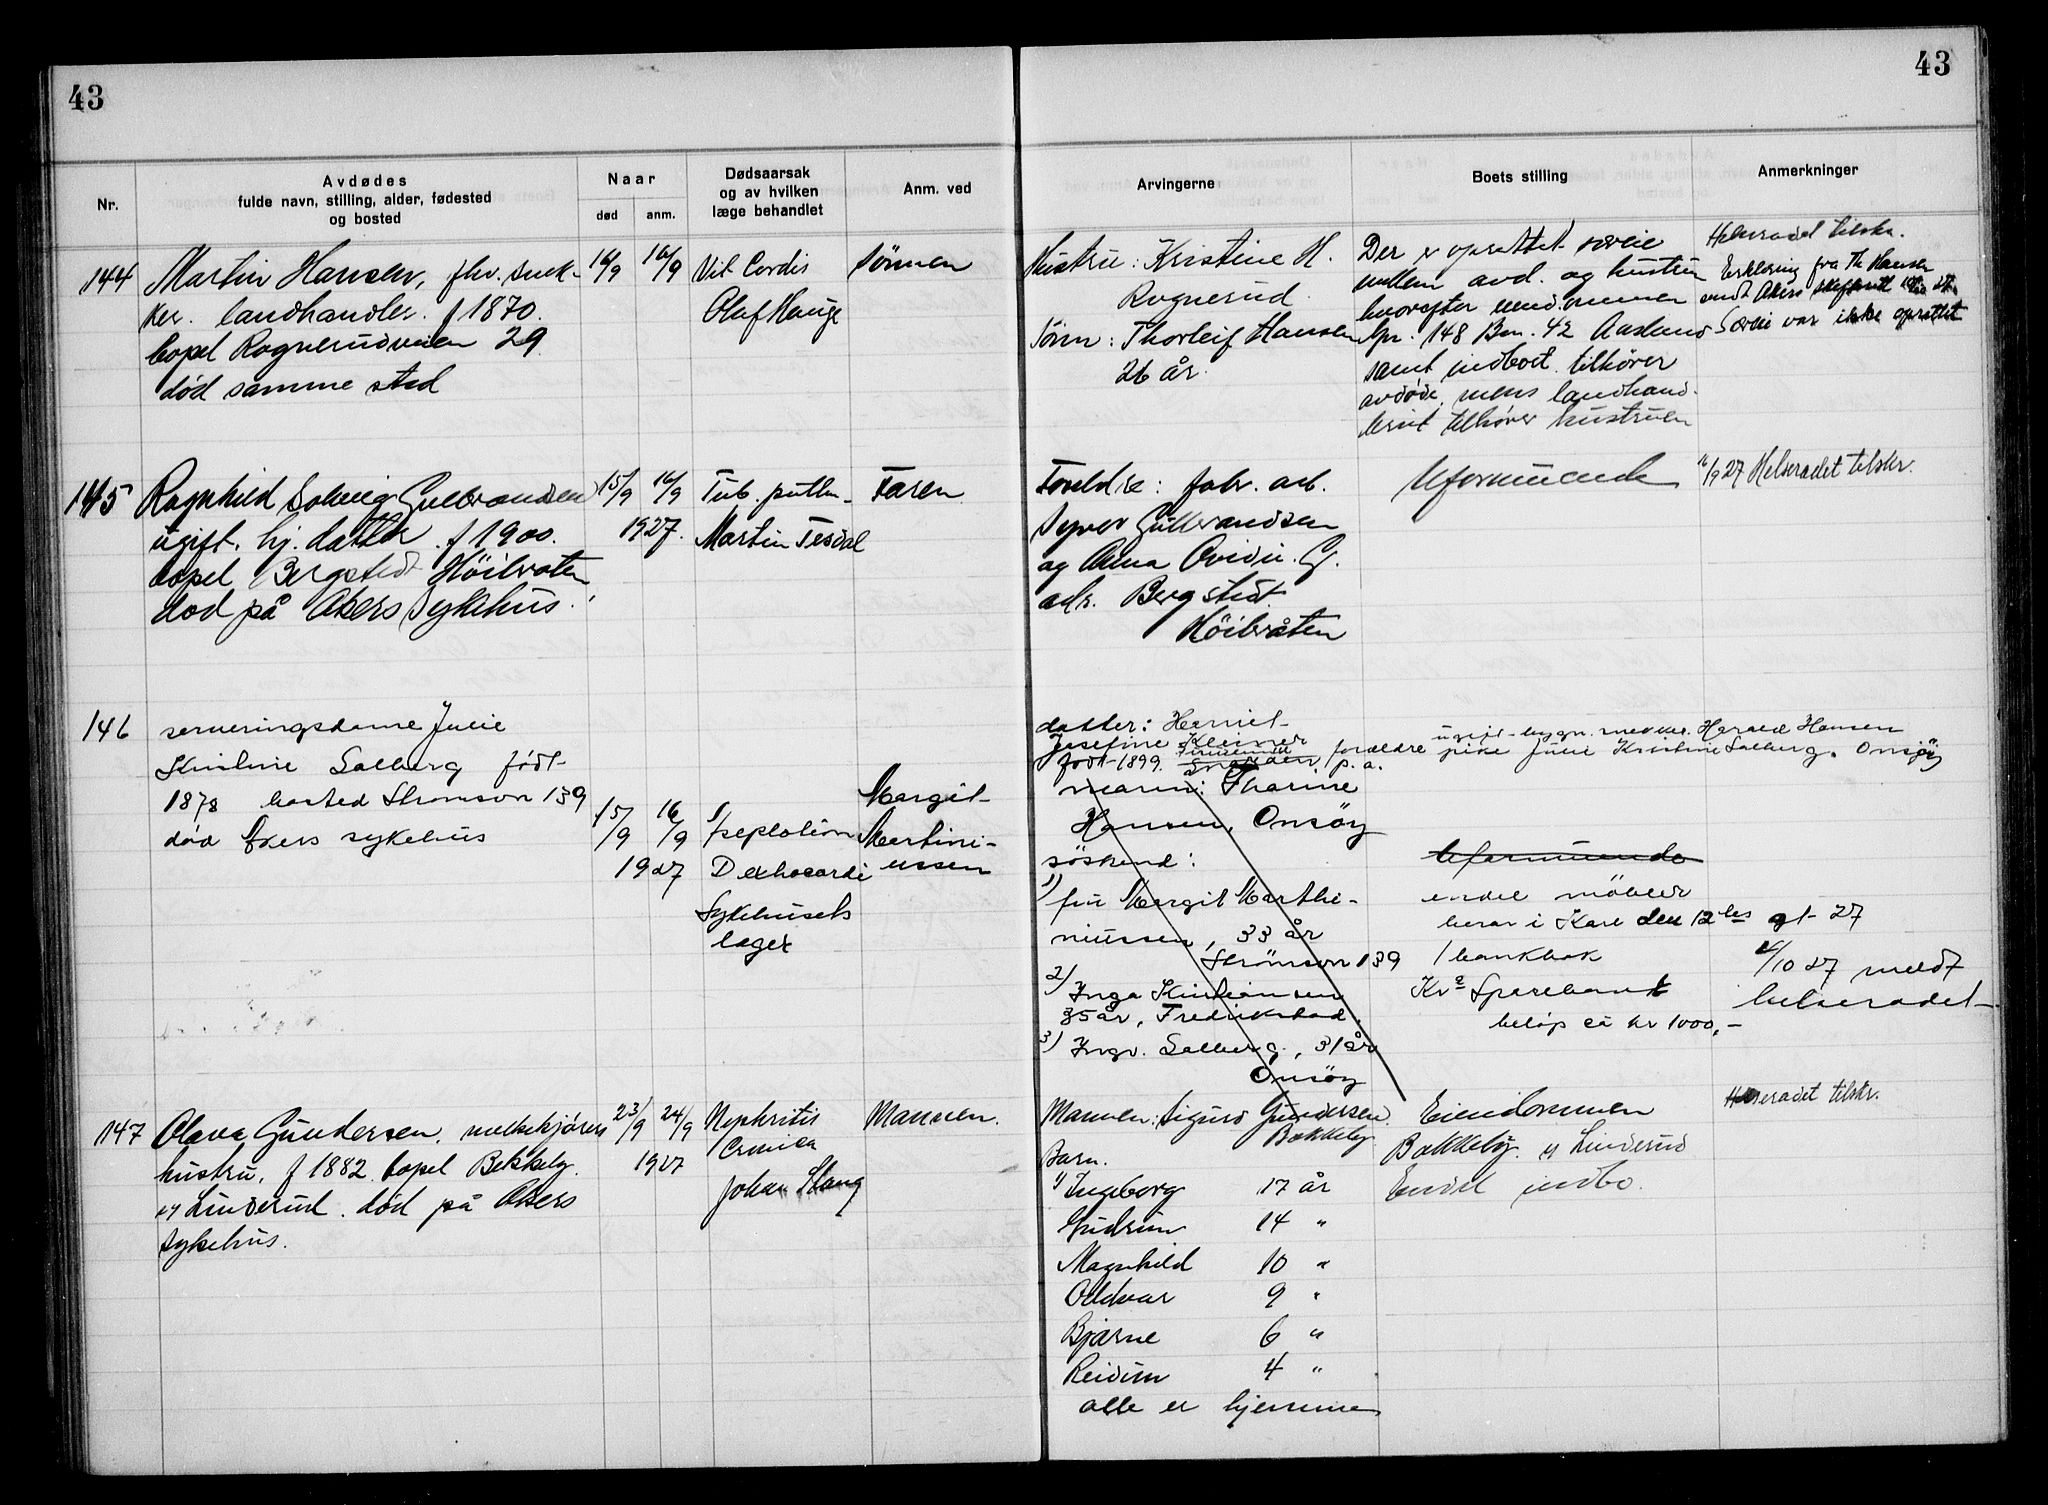 43
43
Nr.
Avdødes
fulde navn, stilling, alder, fødested
og bosted
Naar
død
anm.
Dødsaarsak
og av hvilken
læge behandlet
Anm. ved
Arvingerne
Boets stilling
Anmerkninger
144
Martin Hansen, fhv. snek-
ker. landhandler. f 1870.
bopel Rognerudveien 29
død samme sted
16/9
16/9
Vit Cordis
Olaf Hauge
Sønnen
Hustru: Kristine H.
Rognerud.
Sønn: Thorleif Hansen
26 år.
Der er oprettet særeie
mellem avd. og hustru
hvorefter eiendommen
Gnr. 148 Bn. 42 Aaslund
samt indboet tilhører
avdøde, mens landhand-
leriet tilhører hustruen
Helseradet tilskr.
Erklæring fra Th Hansen
Særeie var ikke oprettet
145
Ragnhild Solveig Gulbrandsen
ugift. hj. datter. f 1900.
bopel Bergstedt Høibraten
død på Akers Sykehus.
15/9
16/9
1927.
Tub. pulm.
Martin Tesdal
Faren
Foreldre: fabr. arb.
Syver Gulbrandsen
og Anna Ovidie G.
adr. Bergstedt
Høibråten
Uformuende
16/9 27 Helseradet tilskr.
146
serveringsdame Julie
Kristine Solberg født
1878 bosted Strømsvn 139
død Akers sykehus
15/9
16/9
1927
Sykehusets
læge
Margit
Martini-
ussen
datter:
Josefine
født 1899.
forældre
p. a.
ugift bygn. snekker. Harald Hansen
pike Julie Kristine Solberg. Onsøy
Hansen, Onsøy
søskend:
1) fru Margit Marthi-
niussen, 33 år
Strømsvn 139
2) Inga Kristiansen
35 år, Fredrikstad.
3) Ingv. Solberg, 31 år
Onsøy
Uformuende
endel møbler
1 bankbok
Kra Sparebank
beløp ca kr 1000,-
4/10 27 meldt
helseradet
147
Olava Gundersen, melkekjørers
hustru, f 1882 bopel Bekkeby
pr Linderud. død på Akers
sykehus.
23/9
24/9
1927
Nephritis
Cronica
Johan Stang
Mannen.
Mannen: Sigurd Gundersen.
Bakkeby
Barn.
1) Ingeborg 17 år
Gudrun 14 "
Magnhild 10 "
Oddvar 9 "
Bjarne 6 "
Reidun 4 "
alle er hjemme
Eiendommen
Bakkeby. pr Linderud
Endel indbo.
Helseradet tilskr.